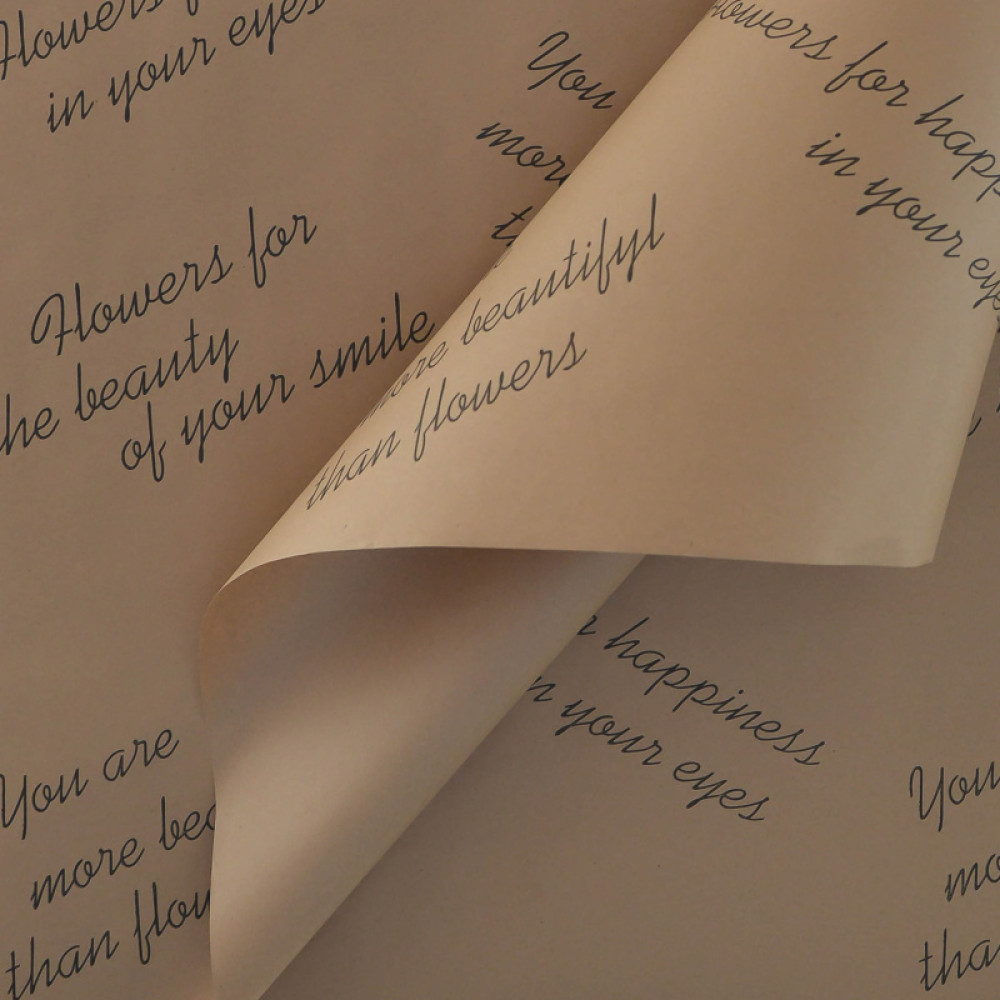 Flowers
in your eyes
You
Flowers for
the beauty
of your smile
flowers for
in your
more beautifyl
than flowers
happiness
in your eyes
You are
more
than
You